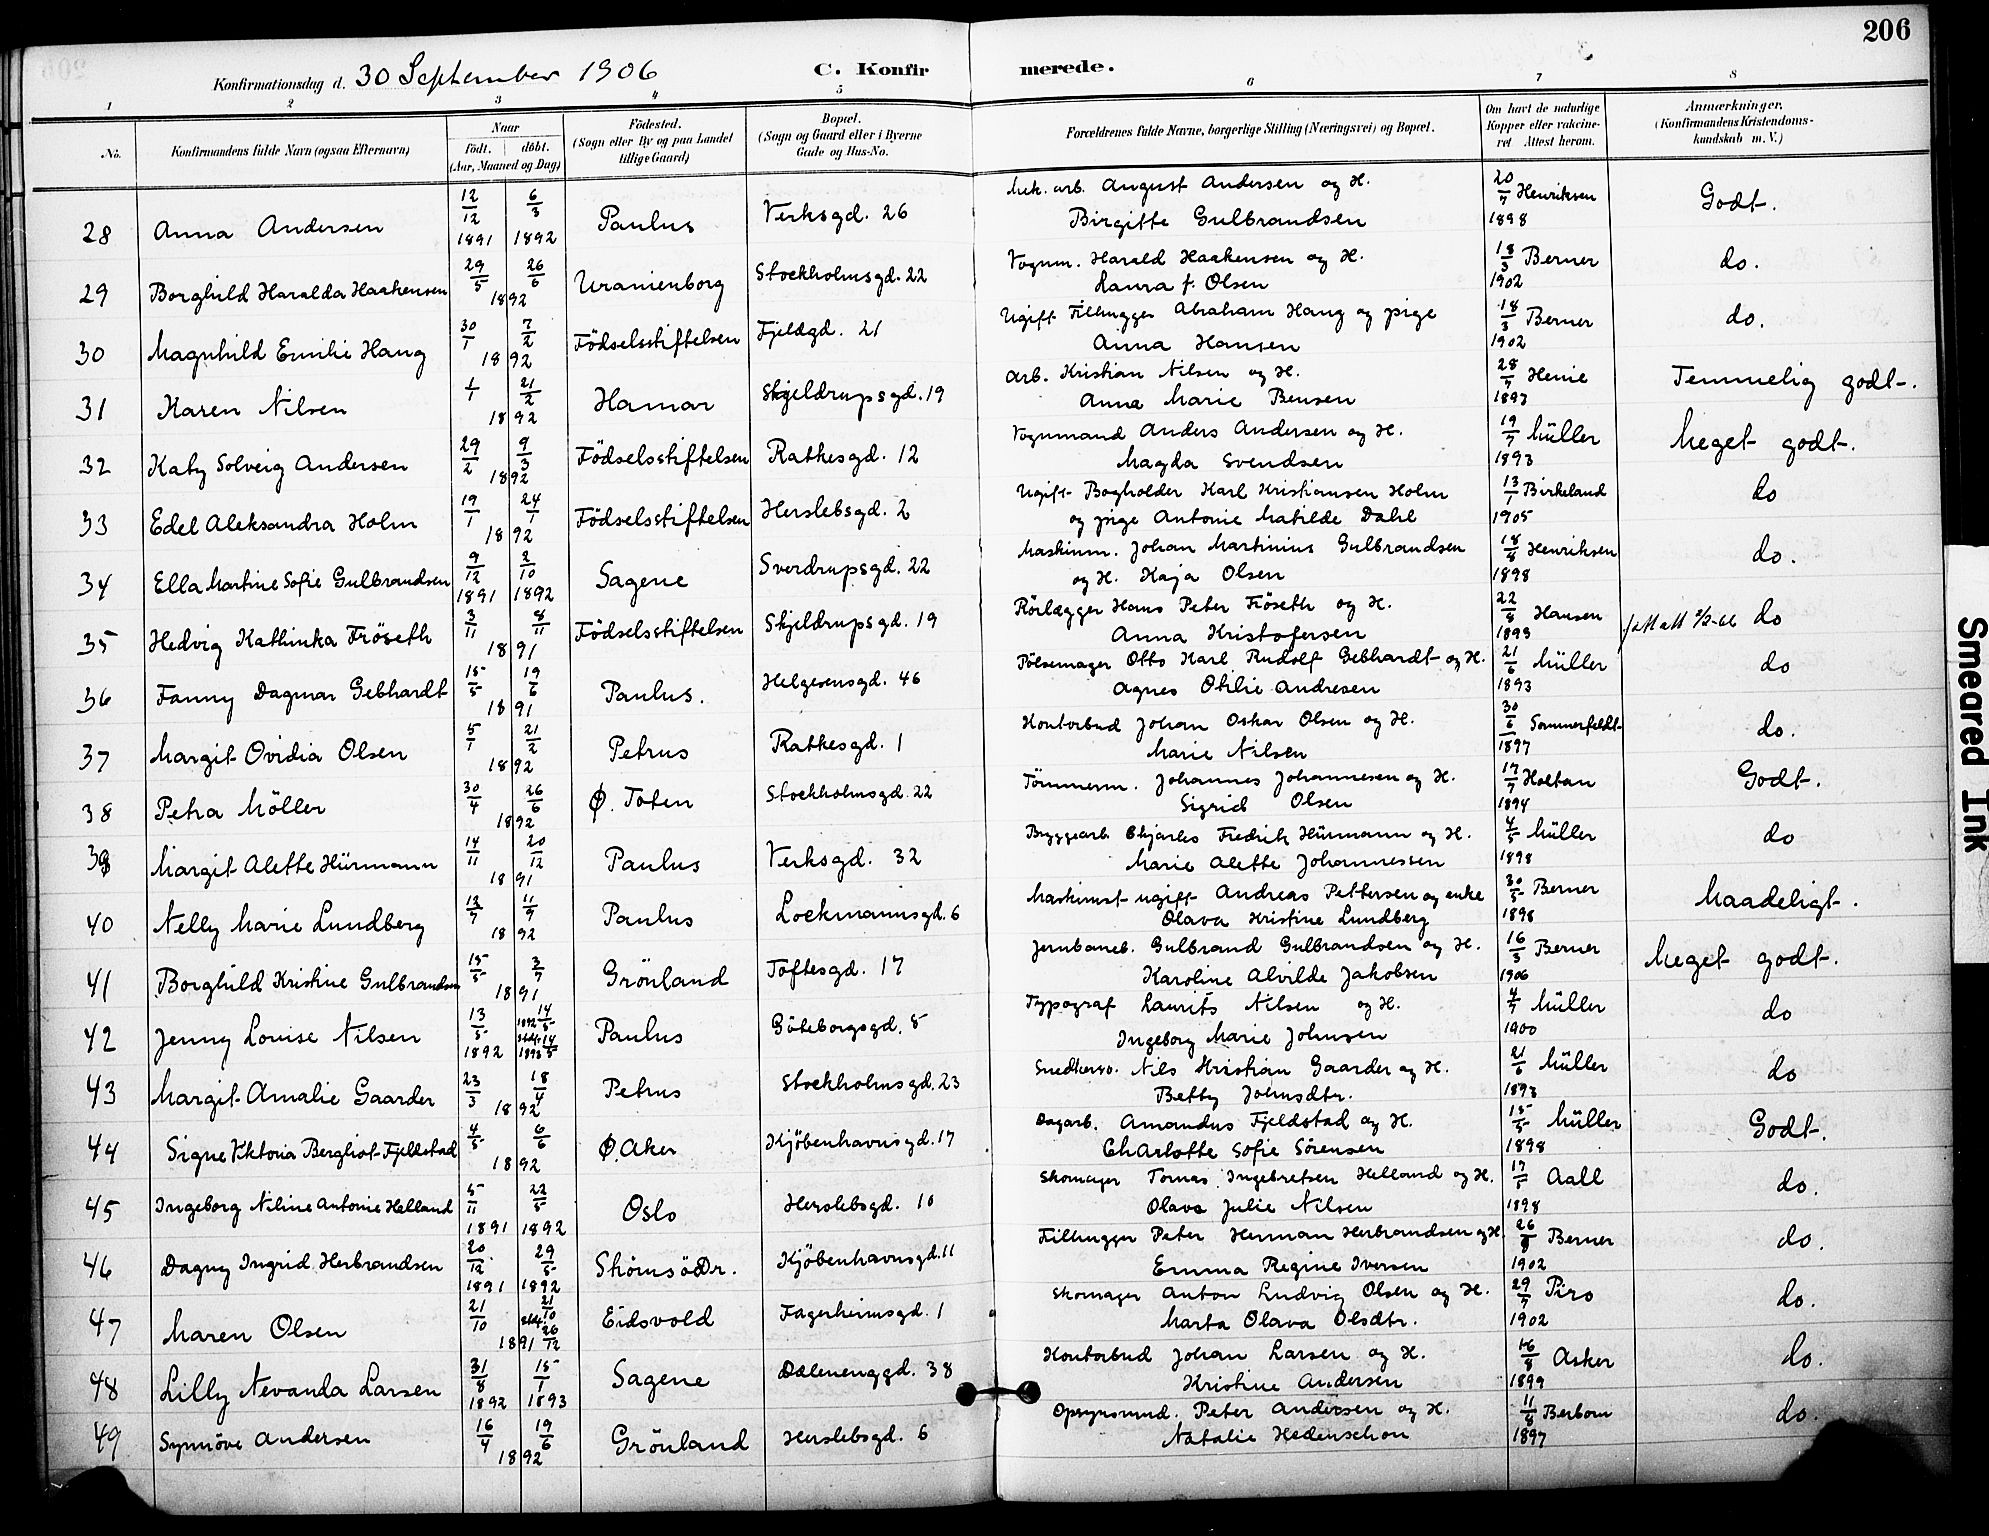 206
Konfirmationsdag d. 30 September 1906
C. Konfirmerede.
1 2 3 4 5 6 7 8
No.
Konfirmandens fulde Navn (ogsaa Efternavn)
Naar
født. døbt.
(Aar, Maaned og Dag)
Fødested.
(Sogn eller By og paa Landet
tillige Gaard)
Bopæl.
(Sogn og Gaard eller i Byerne
Gade og Hus-No.
Forældrenes fulde Navne, borgerlige Stilling (Næringsvei) og Bopæl.
Om havt de naturlige
Kopper eller vakcine-
ret Attest herom.
Anmærkninger.
(Konfirmandens Kristendoms-
kundskab m. V.)
28 Anna Andersen 12/12 1891 6/3 1892 Paulus Verksgd. 26 Mek. arb. August Andersen og H. Birgitte Gulbrandsen 20/7 1898 Henriksen Godt.
29 Borghild Haralda Haakensen 29/5 26/6 1892 Uranienborg Stockholmsgd. 22 Vognm. Harald Haakensen og H. Laura f. Olsen 18/3 1902 Berner do.
30 Magnhild Emilie Haug 30/1 7/2 1892 Födselsstiftelsen Fjeldgd. 21 Ugift Filhugger Abraham Haug og pige Anna Hansen 18/3 1902 Berner do.
31 Karen Nilsen 1/1 21/2 1892 Hamar Skjeldrupsgd. 19 Arb. Kristian Nilsen og H. Anna Marie Bensen 28/7 1893 Henie Temmelig godt.
32 Katy Solveig Andersen 29/2 9/3 1892 Födselsstiftelsen Rathesgd. 12 Vognmand Anders Andersen og H. Magda Svendsen 19/7 1893 Müller Meget godt.
33 Edel Aleksandra Holm 19/1 24/1 1892 Födselsstiftelsen Herslebsgd. 2 Ugift Bogholder Karl Kristiansen Holm og pige Antonie Matilde Dahl 13/1 1905 Birkeland do
34 Ella Martine Sofie Gulbrandsen 9/12 1891 2/10 1892 Sagene Sverdrupsgd. 22 Maskinm. Johan Martinius Gulbrandsen og H. Kaja Olsen 18/8 1898 Henriksen do.
35 Hedvig Kathinka Fröseth 3/11 8/11 1891 Födselsstiftelsen Skjeldrupsgd. 19 Rörlægger Hans Peter Fröseth og H. Anna Kristofersen 22/8 1893 Hansen do
36 Fanny Dagmar Gebhardt 15/5 19/6 1891 Paulus. Helgesensgd. 46 Pölsemager Otto Karl Rudolf Gebhardt og H. Agnes Otilie Andresen 21/6 1893 Müller do
37 Margit Ovidia Olsen 5/1 21/2 1892 Petrus Rathesgd. 1 Kontorbud Johan Oskar Olsen og H. Marie Nilsen 30/6 1897 Sommerfeldt do.
38 Petra Möller 30/4 26/6 1892 Ø. Toten Stockholmsgd. 22 Tömmerm. Johannes Johannesen og H. Sigrid Olsen 17/7 1894 Holtan Godt.
39 Margit Alette Hürmann 14/11 20/12 1891 Paulus Verksgd. 32 Bryggearb. Charles Fredrik Hürmann og H. Marie Alette Johannessen 4/5 1898 Müller do
40 Nelly Marie Lundberg 13/7 11/9 1892 Paulus Lockmannsgd. 6 Maskinist ugift Andreas Pettersen og enke Olava Kristine Lundberg 30/5 1898 Berner Maadeligt.
41 Borghild Kristine Gulbrandsen 15/5 3/7 1891 Grönland Toftesgd. 17 Jernbaneb. Gulbrand Gulbrandsen og H. Karoline Alvilde Jakobsen 16/3 1906 Berner Meget godt.
42 Jenny Louise Nilsen 13/5 1892 1892 14/5 1893 14/5 Paulus Göteborgsgd. 5 Typograf Laurits Nilsen og H. Ingeborg Marie Johnsen 4/7 1900 Müller do
43 Margit Amalie Gaarder 23/3 18/4 1892 Petrus Stockholmsgd. 23 Snedkersv. Nils Kristian Gaarder og H. Betty Johnsdtr. 21/6 1893 Müller do
44 Signe Viktoria Bergliot Fjeldstad 4/5 6/6 1892 Ø. Aker Kjöbenhavnsgd. 17 Dagarb. Amandus Fjeldstad og H. Charlotte Sofie Sörensen 15/5 1898 Müller Godt.
45 Ingeborg Niline Antonie Helland 5/11 1891 22/5 1892 Oslo Herslebsgd. 10 Skomager Tomas Ingebretsen Helland og H. Olava Julie Nilsen 17/5 1898 Aall do.
46 Dagny Ingrid Herbrandsen 20/12 1891 29/5 1892 Strömsö Dr. Kjöbenhavnsgd. 11 Filhugger Peter Herman Herbrandsen og H. Emma Regine Iversen 26/8 1902 Berner do.
47 Maren Olsen 21/10 21/10 26/12 1891 Eidsvold Fagerheimsgd. 1 Skomager Anton Ludvig Olsen og H. Marta Olava Olsdtr. 29/7 1902 Piro do.
48 Lilly Nevanda Larsen 31/8 1892 15/1 1893 Sagene Dælenenggd. 38 Kontorbud Johan Larsen og H. Kristine Andersen 16/8 1899 Asker do.
49 Synnöve Andersen 16/4 19/6 1892 Grönland Herslebsgd. 6 Opsynsmnd. Peter Andersen og H. Natalie Hedenschou 11/8 1897 Berbom do.
Smeared Ink